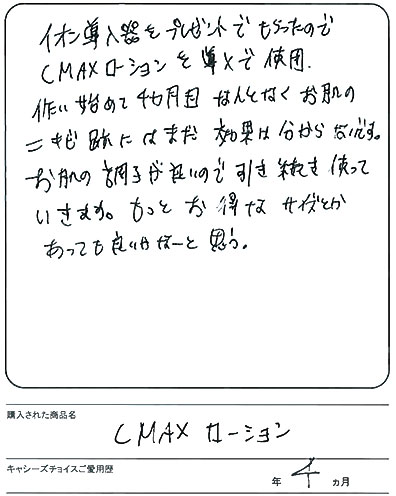 イオン導入器をプレゼントでもらったので
CMAXローションを導入で使用.
使い始めて4ヵ月目 なんとなくお肌の
ニキビ跡にはまだ効果は分からないです。
お肌の調子が良いので引き続き使って
いきます。もっとお得なサイズとか
あっても良いかなーと思う。
購入された商品名
CMAX ローション
キャシーズチョイスご愛用歴
年 4 ヵ月